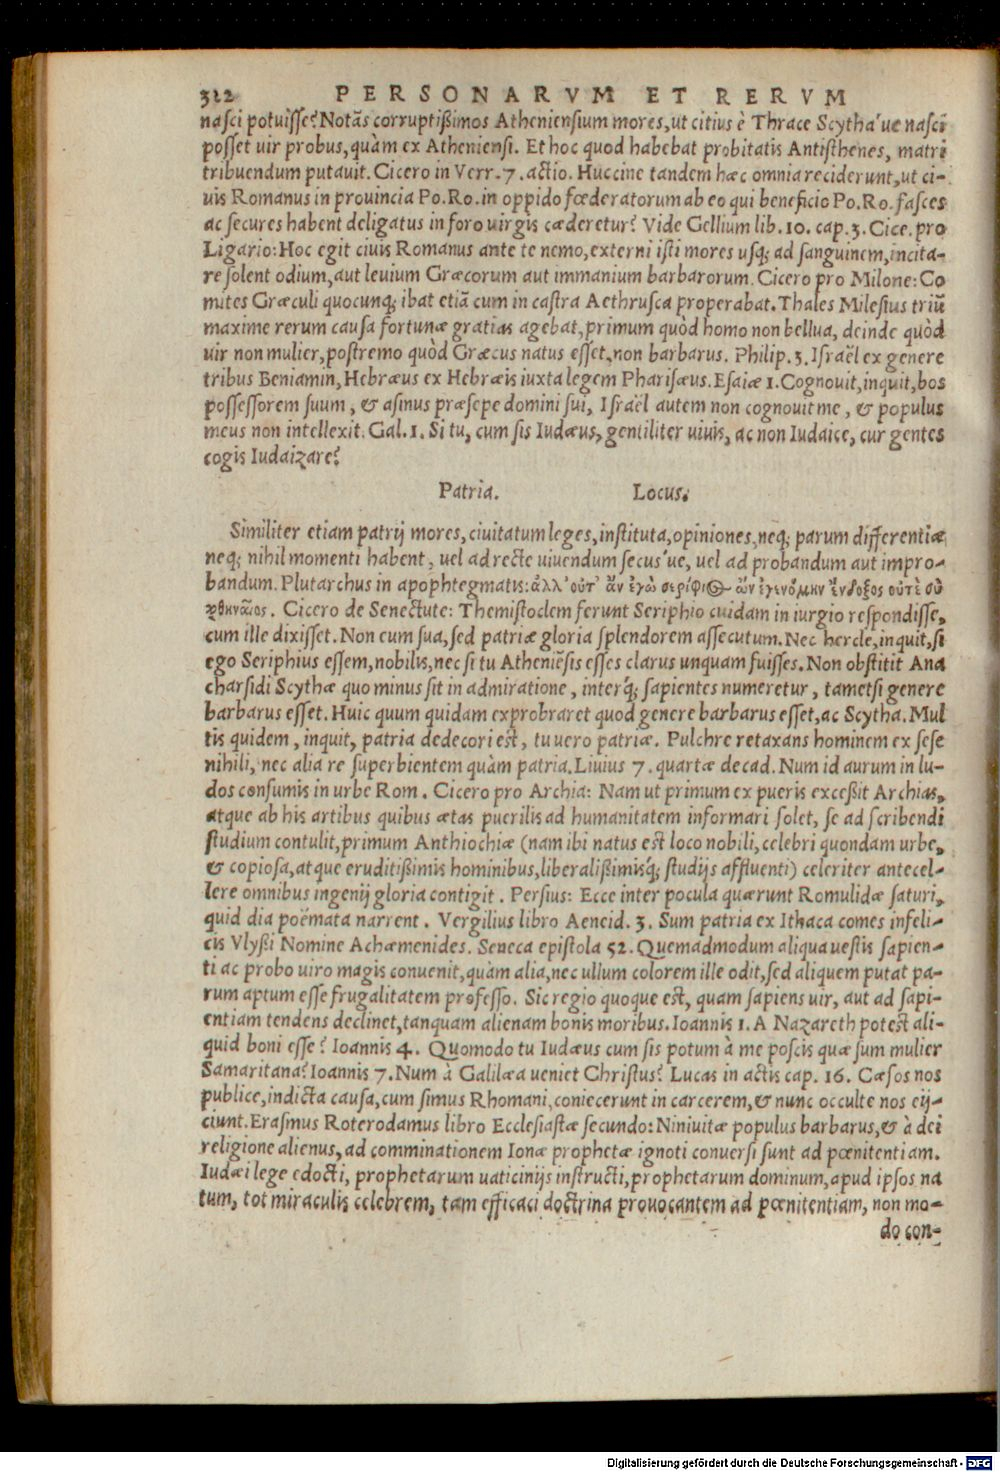 312 PERSONARVM ET RERVM
nasci potuisse? Notãs corruptißimos Atheniensium mores, ut citius è Thrace Scytha'ue nasci
posset uir probus, quàm ex Atheniensi. Et hoc quod habebat probitatis Antisthenes, matri
tribuendum putauit. Cicero in Verr. 7. actio. Huccine tandem hæc omnia reciderunt, ut ci-
uis Romanus in prouincia Po. Ro. in oppido fœderatorum ab eo qui beneficio Po. Ro. fasces
ac secures habent deligatus in foro uirgis cæderetur? Vide Gellium lib. 10. cap. 3. Cice. pro
Ligario: Hoc egit ciuis Romanus ante te nemo, externi isti mores usq; ad sanguinem, incita-
re solent odium, aut leuium Græcorum aut immanium barbarorum. Cicero pro Milone: Co
mites Græculi quocunq; ibat etiã cum in castra Aethrusca properabat. Thales Milesius triũ
maxime rerum causa fortunæ gratias agebat, primum quòd homo non bellua, deinde quòd
uir non mulier, postremo quòd Græcus natus esset, non barbarus. Philip. 3. Israël ex genere
tribus Beniamin, Hebræus ex Hebræis iuxta legem Pharisæus. Esaiæ 1. Cognouit, inquit, bos
possessorem suum, & asinus præsepe domini sui, Israël autem non cognouit me, & populus
meus non intellexit. Gal. 1. Si tu, cum sis Iudæus, gentiliter uiuis, ac non Iudaice, cur gentes
cogis Iudaizare?
Patria. Locus.
Similiter etiam patrij mores, ciuitatum leges, instituta, opiniones, neq; parum differentiæ
neq; nihil momenti habent, uel ad recte uiuendum secus'ue, uel ad probandum aut impro-
bandum. Plutarchus in apophtegmatis: ἀλλ' οὐτ' ἂν ἐγὼ σερίφιος ὢν ἐγενόμην ἔνδοξος οὐτὲ σὺ
ἀθηναῖος. Cicero de Senectute: Themistoclem ferunt Seriphio cuidam in iurgio respondisse,
cum ille dixisset. Non eum sua, sed patriæ gloria splendorem assecutum. Nec hercle, inquit, si
ego Seriphius essem, nobilis, nec si tu Atheniẽsis esses clarus unquam fuisses. Non obstitit Ana
charsidi Scythæ quo minus sit in admiratione, interq́; sapientes numeretur, tametsi genere
barbarus esset. Huic quum quidam exprobraret quod genere barbarus esset, ac Scytha. Mul
tis quidem, inquit, patria dedecori est, tu uero patriæ. Pulchre retaxans hominem ex sese
nihili, nec alia re superbientem quàm patria. Liuius 7. quartæ decad. Num id aurum in lu-
dos consumis in urbe Rom. Cicero pro Archia: Nam ut primum ex pueris exceßit Archias,
atque ab his artibus quibus ætas puerilis ad humanitatem informari solet, se ad scribendi
studium contulit, primum Anthiochiæ (nam ibi natus est loco nobili, celebri quondam urbe,
& copiosa, atque eruditißimis hominibus, liberalißimisq́; studijs affluenti) celeriter antecel-
lere omnibus ingenij gloria contigit. Persius: Ecce inter pocula quærunt Romulidæ saturi,
quid dia poëmata narrent. Vergilius libro Aeneid. 3. Sum patria ex Ithaca comes infeli-
cis Vlyßi Nomine Achæmenides. Seneca epistola 52. Quemadmodum aliqua uestis sapien-
ti ac probo uiro magis conuenit, quàm alia, nec ullum colorem ille odit, sed aliquem putat pa-
rum aptum esse frugalitatem professo. Sic regio quoque est, quam sapiens uir, aut ad sapi-
entiam tendens declinet, tanquam alienam bonis moribus. Ioannis 1. A Nazareth potest ali-
quid boni esse? Ioannis 4. Quomodo tu Iudæus cum sis potum à me poscis quæ sum mulier
Samaritana? Ioannis 7. Num à Galilæa ueniet Christus? Lucas in actis cap. 16. Cæsos nos
publice, indicta causa, cum simus Rhomani, coniecerunt in carcerem, & nunc occulte nos eij-
ciunt. Erasmus Roterodamus libro Ecclesiastæ secundo: Niniuitæ populus barbarus, & à dei
religione alienus, ad comminationem Ionæ prophetæ ignoti conuersi sunt ad pœnitentiam.
Iudæi lege edocti, prophetarum uaticinijs instructi, prophetarum dominum, apud ipsos na
tum, tot miraculis celebrem, tam efficaci doctrina prouocantem ad pœnitentiam, non mo-
do con-
Digitalisierung gefördert durch die Deutsche Forschungsgemeinschaft - DFG